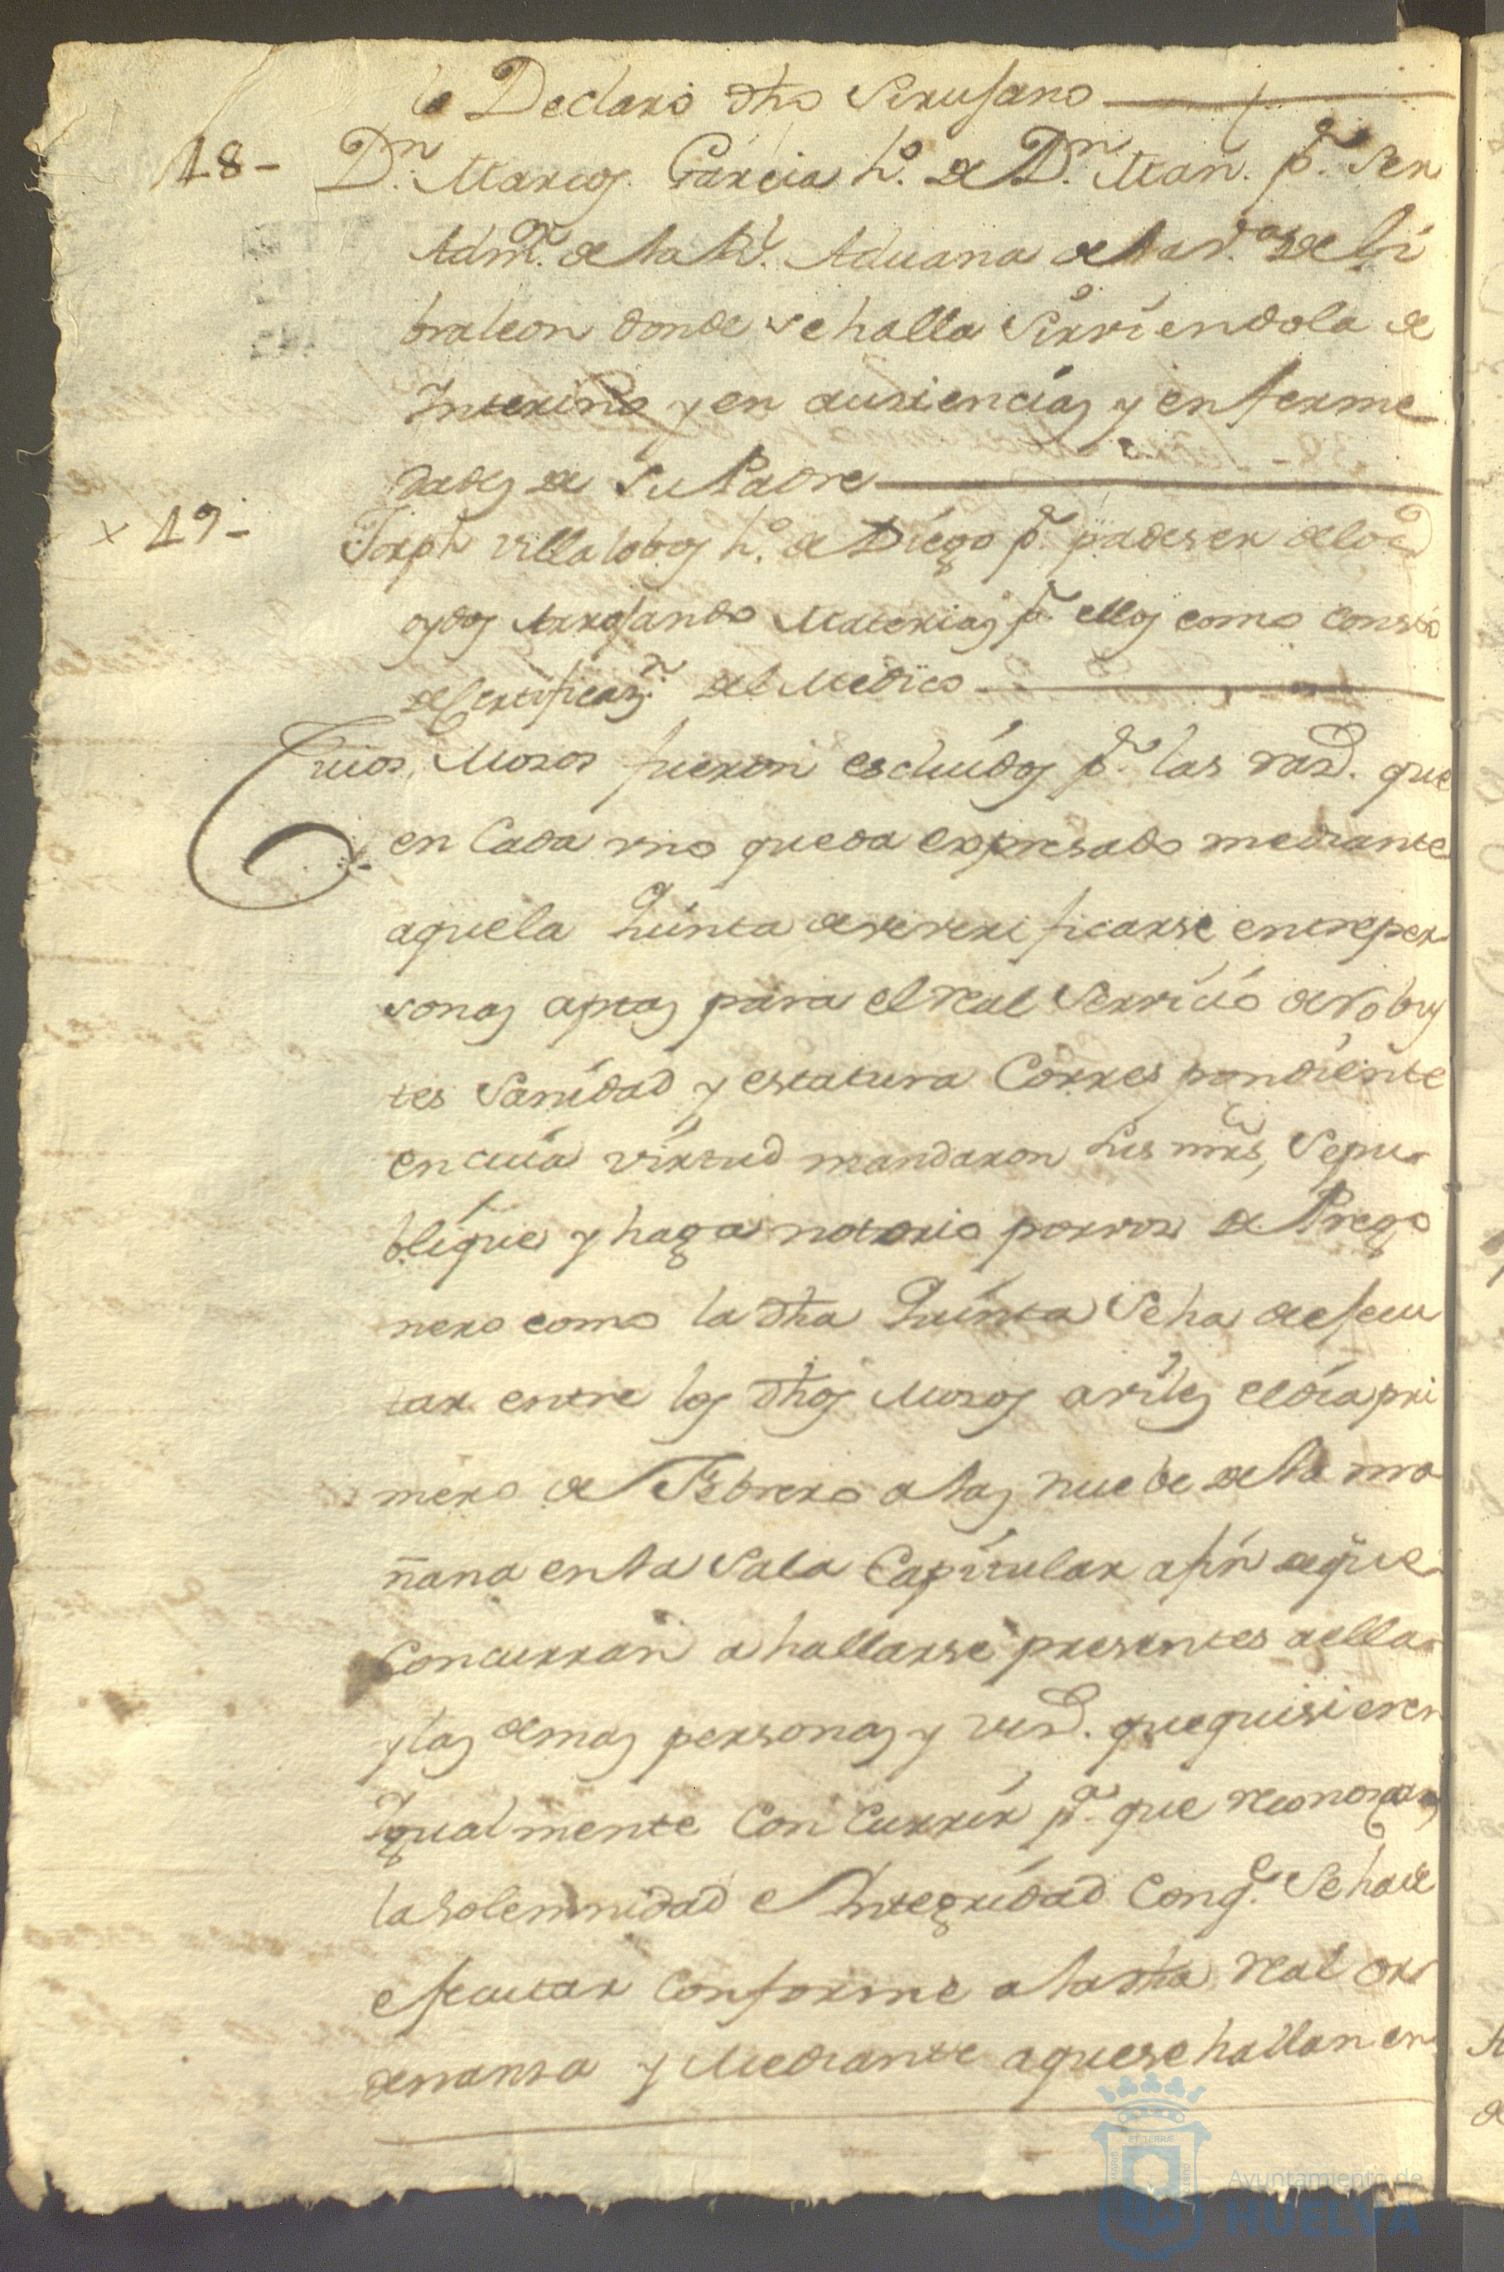 lo Declaró dho Sirujano
18- Dn. Marcos Garcia ho. de Dn. Man. pr. ser
Admor. de la Rl. Aduana de la va. de Gi
braleon donde se halla Sirviendola de
Interino y en ausiencias y enferme
dades de su Padre
x 19- Joseph Villalobos ho. de Diego pr. padeser de los
oydos Arrojando Materias pr. ellos como consta
de Certificazn. del Medico
Cuios Mosos fueron escluidos pr. las razs. que
en Cada vno queda expresado mediante
aquela Quinta deve verificarse entre per
sonas aptas para el real Servicio de robus
tes Sanidad y estatura Correspondiente
en cuia virtud mandaron sus mrds, Se pu
blique y haga notorio por vos de Prego
nero como la dha Quinta Se ha de ejecu
tar entre los dhos Mosos aviles el dia pri
mero de Febrero a las nuebe de la ma
ñana en la Sala Capitular a fin de que
Concurran a hallarse presentes a ella
y las demas personas y vezs. que quisieren
Igualmente Concurrir pa. que reconozcan
la Solemnidad e Integridad Con qe. Se ha de
ejecutar Conforme a la dha real or
denansa y Mediante a que se hallan en
Ayuntamiento de
HUELVA